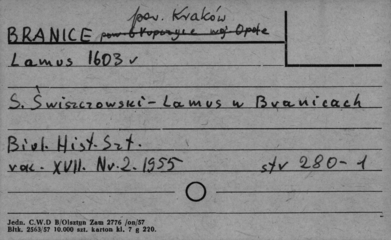 pow. Kraków
BRANICE pow Głubczyce woj Opole
Lamus 1603 r
S. Świszczowski - Lamus w Branicach
Biul. Hist. Szt.
rok. XVII. Nr. 2. 1955 str 280-1
Jedn. C.W.D B/Olsztyn Zam 2776 /on/57
Bltk. 2563/57 10.000 szt. karton kl. 7 g 220.